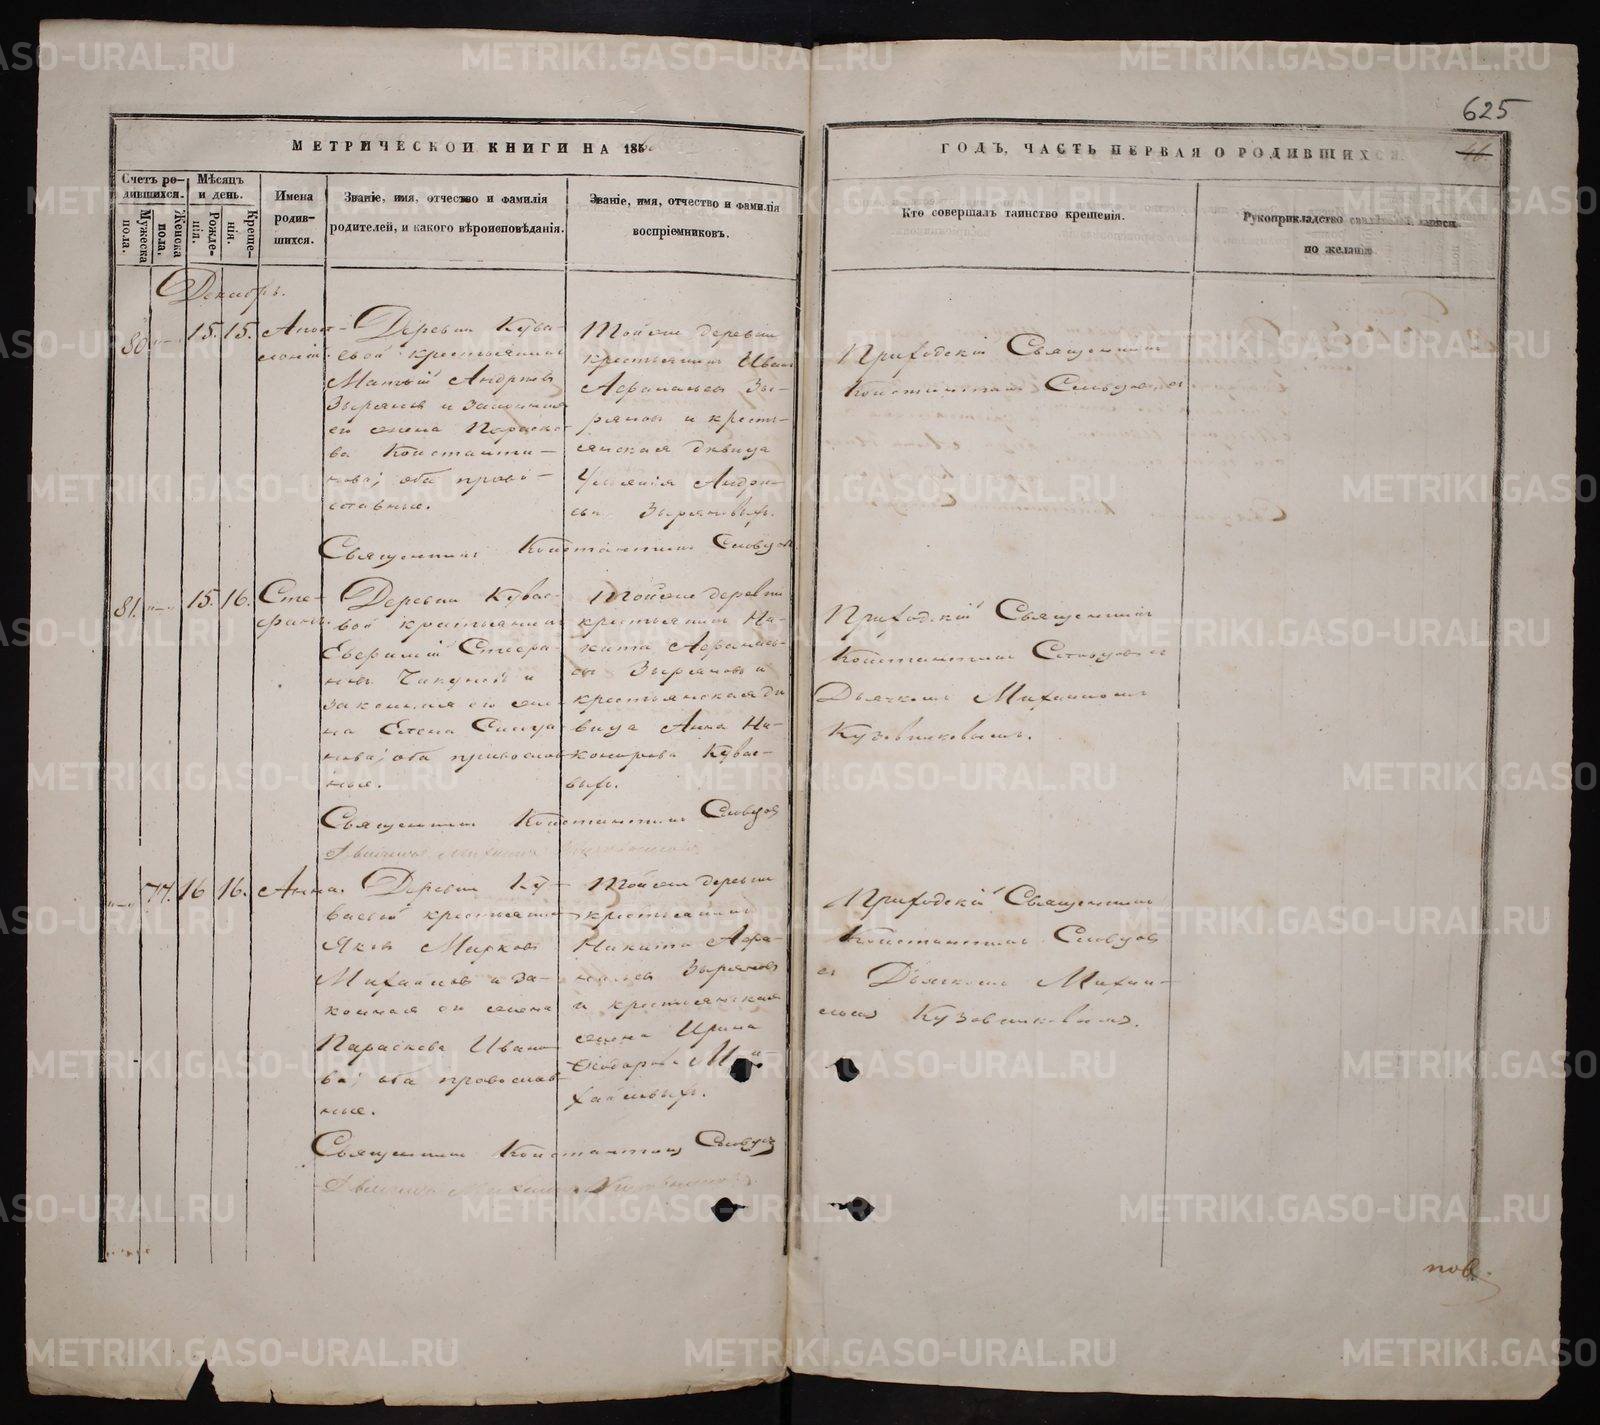 625
МЕТРИЧЕСКОЙ КНИГИ НА 186
ГОДЪ, ЧАСТЬ ПЕРВАЯ О РОДИВШИХСЯ.
46
Счетъ ро-
дившихся.
Мужеска
пола.
Женска
пола.
Мѣсяцъ
и день.
Рожде-
нія.
Креще-
нія.
Имена
родив-
шихся.
Званіе, имя, отчество и фамилія
родителей, и какого вѣроисповѣданія.
Званіе, имя, отчество и фамилія
воспріемниковъ.
Кто совершалъ таинство крещенія.
Рукоприкладство свидѣтелей записи
по желанію.
Декабрь.
80
15.
15.
Деревни Кува-
евой крестьянинъ
Матѳій Андреевъ
Зыряновъ и законная
его жена Параске-
ва Константи-
нова; оба право-
славные.
Той же деревни
крестьянинъ Иванъ
Афанасьевъ Зы-
ряновъ и кресть-
янская дѣвица
Андре-
ева Зыряновыхъ.
Приходскій Священникъ
Константинъ Словцовъ
Священникъ Константинъ Словцовъ
81.
15.
16.
Сте-
фанъ.
Деревни Кувае-
вой крестьянинъ
Евфимій Стефа-
новъ и
законная его же-
на Елена
оба православ-
ные.
Той же деревни
крестьянинъ Ни-
кита Афанась-
евъ Зыряновъ и
крестьянская дѣ-
вица Анна Ни-
Кувае-
выхъ.
Приходскій Священникъ
Константинъ Словцовъ съ
Дьячкомъ Михаиломъ
Кузовниковымъ.
Священникъ Константинъ Словцовъ
77.
16
16.
Анна.
Деревни Ку-
ваевой крестьянинъ
Яковъ Марковъ
Михайловъ и за-
конная его жена
Параскева Ивано-
ва; оба православ-
ные.
Той же деревни
крестьянинъ
Никита Афа-
насьевъ Зыряновъ
и крестьянская
жена Ирина
Ѳеодорова Ми-
хайловыхъ.
Приходскій Священникъ
Константинъ Словцовъ
съ Дьячкомъ Михаи-
ломъ Кузовниковымъ.
Священникъ Константинъ Словцовъ
METRIKI.GASO-URAL.RU